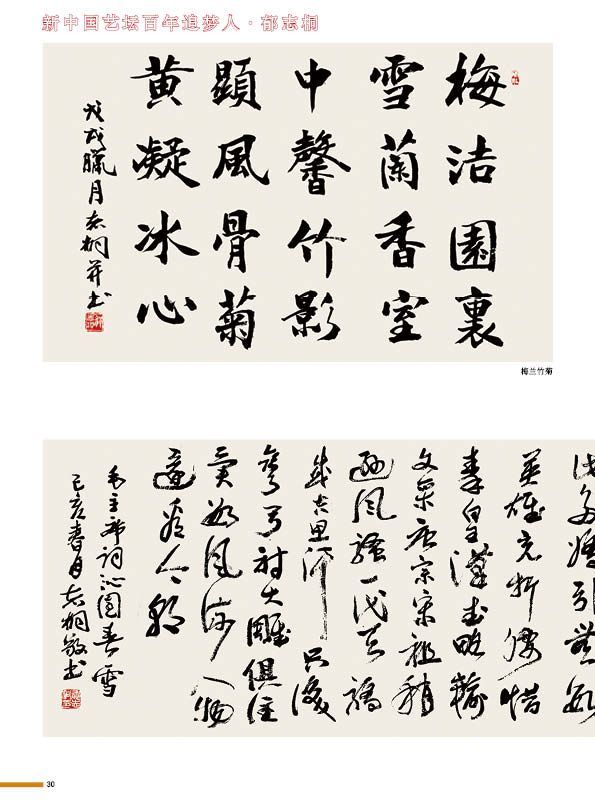 新中国艺坛百年追梦人·郁志桐
梅洁園裏
雪蘭香室
中馨竹影
顯風骨菊
黄凝冰心
戊戌臘月志桐并书
梅兰竹菊
此多娇引無数
英雄竞折腰惜
秦皇漢武略輸
文采唐宗宋祖稍
逊风骚一代天骄
成吉思汗只识
弯弓射大雕俱往
矣数风流人物
還看今朝
毛主席词沁园春雪
己亥春月志桐敬书
30